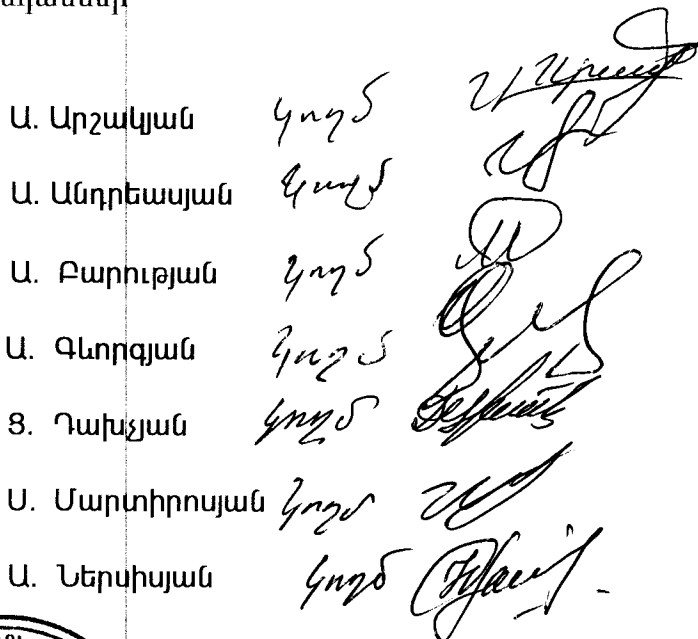 Ա. Արշակյան կողմ
Ա. Անդրեասյան կողմ
Ա. Բարության կողմ
Ա. Գևորգյան կողմ
Ց. Դախչյան կողմ
Ս. Մարտիրոսյան կողմ
Ա. Ներսիսյան կողմ